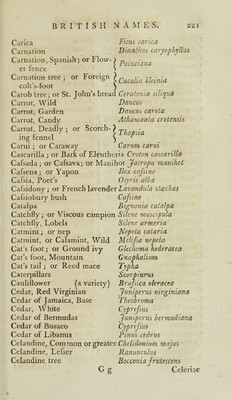 BRITISH NAMES. 221
Carica Ficus carica
Carnation Dianthus caryophyllus
Carnation, Spanish; or Flow-
er fence } Poinciana
Carnation tree; or Foreign
colt's-foot } Cacalia kleinia
Carob tree; or St. John's bread Ceratonia siliqua
Carrot, Wild Daucus
Carrot, Garden Daucus carota
Carrot, Candy Athamanta cretensis
Carrot, Deadly; or Scorch-
ing fennel } Thapsia
Carui; or Caraway Carum carui
Cascarilla; or Bark of Eleutheria Croton cascarilla
Casada; or Cassava; or Manihot Jatropa manihot
Cassena; or Yapon Ilex cassine
Cassia, Poet's Osyris alba
Cassidony; or French lavender Lavandula stœchas
Cassiobury bush Cassine
Catalpa Bignonia catalpa
Catchfly; or Viscous campion Silene muscipula
Catchfly, Lobels Silene armeria
Catmint; or nep Nepeta cataria
Catmint, or Calamint, Wild Melissa nepeta
Cat's foot; or Ground ivy Glechoma hederacea
Cat's foot, Mountain Gnaphalium
Cat's tail; or Reed mace Typha
Caterpillars Scorpiurus
Cauliflower (a variety) Brassica oleracea
Cedar, Red Virginian Juniperus virginiana
Cedar of Jamaica, Base Theobroma
Cedar, White Cypressus
Cedar of Bermudas Juniperus bermudiana
Cedar of Busaco Cypressus
Cedar of Libanus Pinus cedrus
Celandine, Common or greater Chelidonium majus
Celandine, Lesser Ranunculus
Celandine tree Bocconia frutescens
G g Celeriac